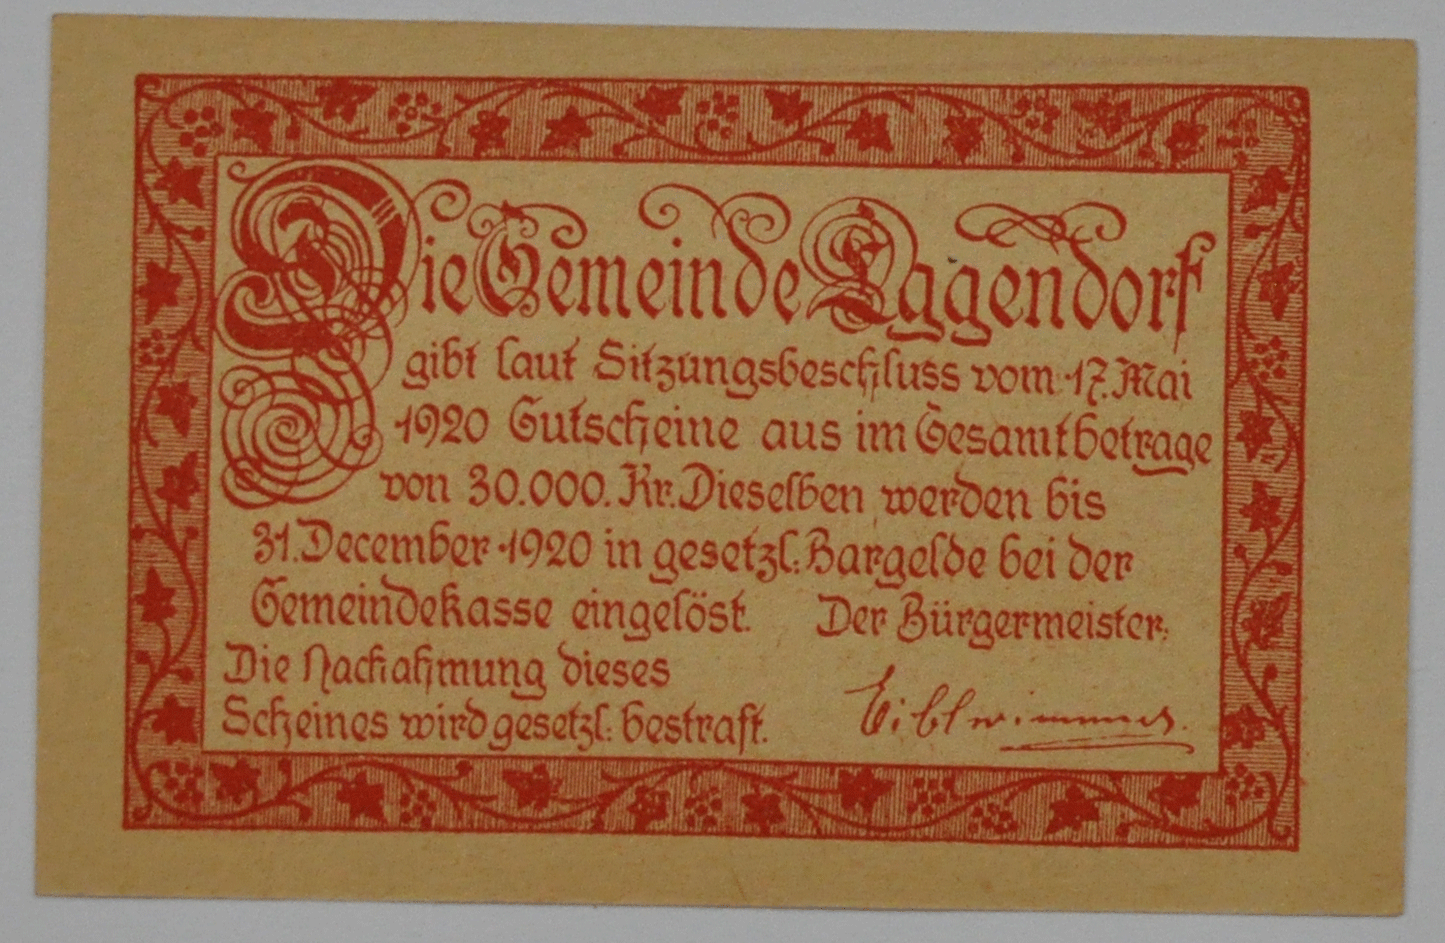 Die Gemeinde Eggendorf
gibt laut Sitzungsbeschluss vom 17. Mai
1920 Gutscheine aus im Gesamtbetrage
von 30.000. Kr. Dieselben werden bis
31. December 1920 in gesetzl: Bargelde bei der
Gemeindekasse eingelöst. Der Bürgermeister:
Die Nachahmung dieses
Scheines wird gesetzl: bestraft.